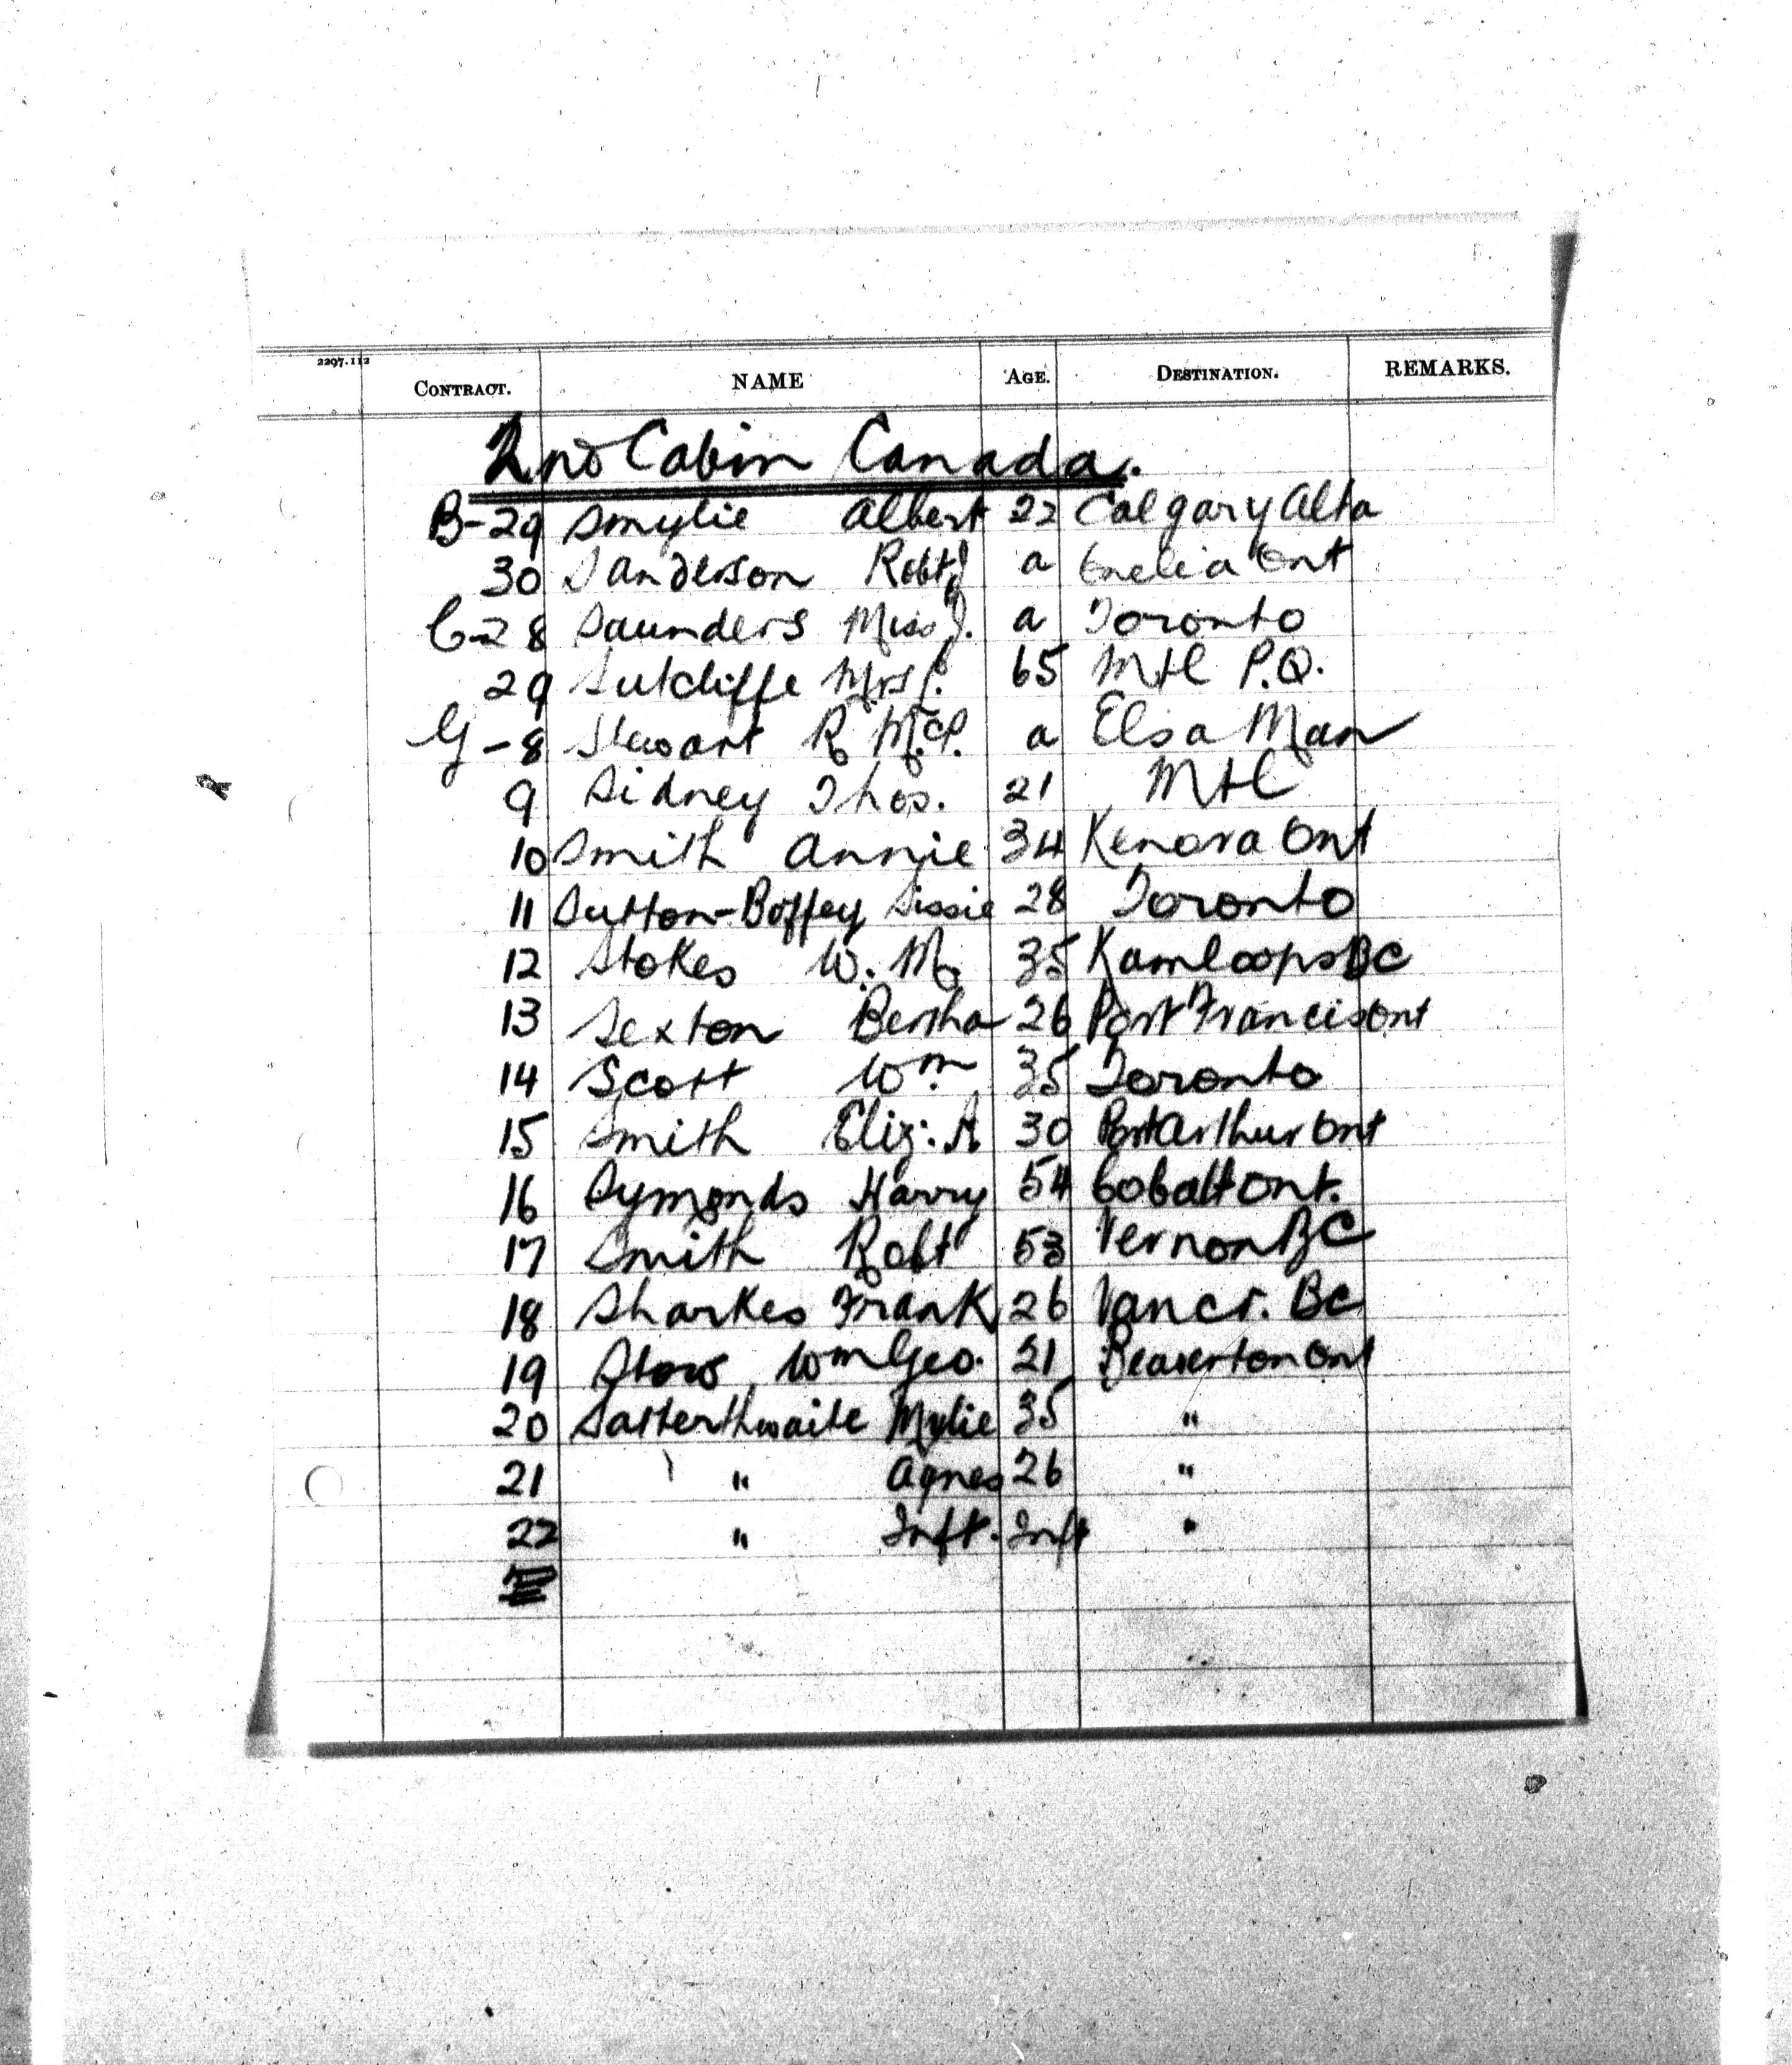 2297.112
CONTRACT. NAME AGE. DESTINATION. REMARKS.
2nd Cabin Canada.
B-29 Smylie Albert 22 Calgary Alta
30 Sanderson Robt J a Ont
C-28 Saunders Miss J. a Toronto
29 Sutcliffe Mrs 65 Mtl P.Q.
G-8 Stewart R McP. a Elsa Man
9 Sidney Thos. 21 Mtl
10 Smith Annie 34 Kenora Ont
11 Sutton-Boffey Sissie 28 Toronto
12 Stokes W. M. 35 Kamloops BC
13 Sexton Bertha 26 Port Francis Ont
14 Scott Wm 35 Toronto
15 Smith Eliz. A 30 Port Arthur Ont
16 Symonds Harry 54 Cobalt Ont.
17 Smith Robt 53 Vernon BC
18 Sharkes Frank 26 Vancr. BC
19 Stow Wm Geo. 21 Beaverton Ont
20 Satterthwaite Mylie 35 "
21 " Agnes 26 "
22 " Inft. Inft "